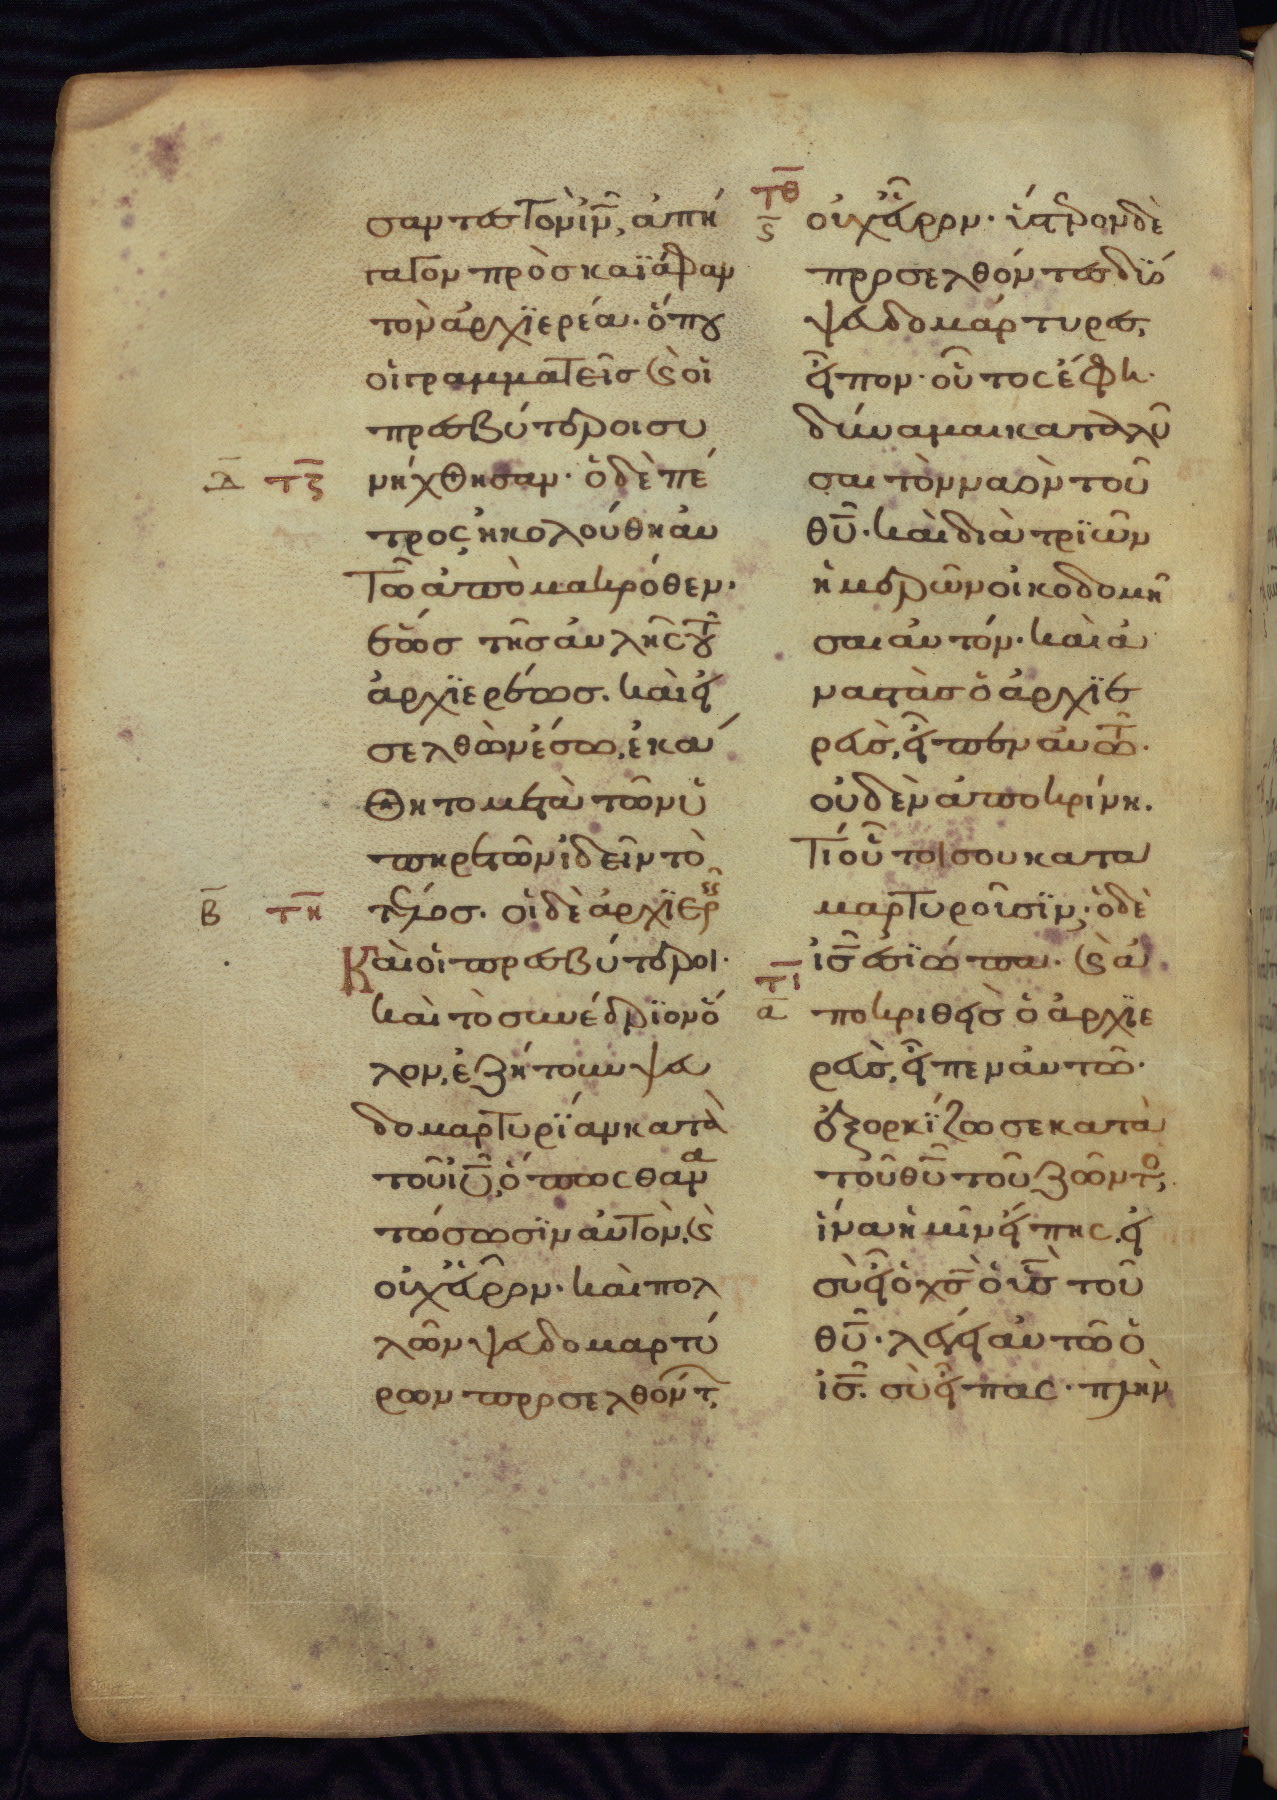 σαντες τὸν ἰν̅, ἀπή
γαγον πρὸς καϊάφαν
τὸν ἀρχϊερέα· ὅπου
οἱ γραμματεῖς καὶ οἱ
πρεσβύτεροι συ
Δ̅ τ̅ζ̅ νήχθησαν· ὁ δὲ πέ
τρος ἠκολούθη αυ
τῶ ἀπὸ μακρόθεν·
ἕως τῆς αὐλῆς τοῦ
ἀρχϊερέως. καὶ εἰ
σελθὼν ἔσω, ἐκά
θητο μετὰ τῶν ὑ
πηρετῶν ἰδεῖν τὸ
Β̅ τ̅η̅ τέλος. οἱ δὲ ἀρχϊερεῖς
Καὶ οἱ πρεσβύτεροι·
καὶ τὸ συνέδρϊον ὅ
λον, ἐζήτουν ψευ
δομαρτυρίαν κατὰ
τοῦ ἰυ̅, ὅπως θανα
τώσωσϊν αὐτὸν, καὶ
οὐχ εὗρον· καὶ πολ
λῶν ψευδομαρτύ
ρων προσελθόντ,
τ̅θ̅
ς̅ οὐχ εὗρον· ὕστερον δὲ
προσελθόντες δύο
ψευδομάρτυρες,
εἶπον· οὗτος ἔφη·
δύναμαι καταλῦ
σαι τὸν ναὸν τοῦ
θυ̅· καὶ διὰ τρϊῶν
ἡμερῶν οἰκοδομῆ
σαι αυτόν· καὶ ἀ
ναστὰς ὁ ἀρχϊε
ρεὺς, εἶπεν αυτῶ·
οὐδὲν ἀποκρίνη.
Τί οὗτοι σου κατα
μαρτυροῦσϊν; ὁ δὲ
ἰς̅ ἐσϊώπα· καὶ ἀ
τ̅ι̅
α̅ ποκριθεὶς ὁ ἀρχϊε
ρεὺς, εἶπεν αυτῶ·
ἐξορκίζω σε κατὰ
τοῦ θυ̅ τοῦ ζῶντο,
ἵνα ἡμῖν εἴπης, εἰ
σὺ εἶ ὁ χς̅ ὁ ὑς̅ τοῦ
θυ̅· λέγει αυτῶ ὁ
ἰς̅. σὺ εἶπας· πλὴν